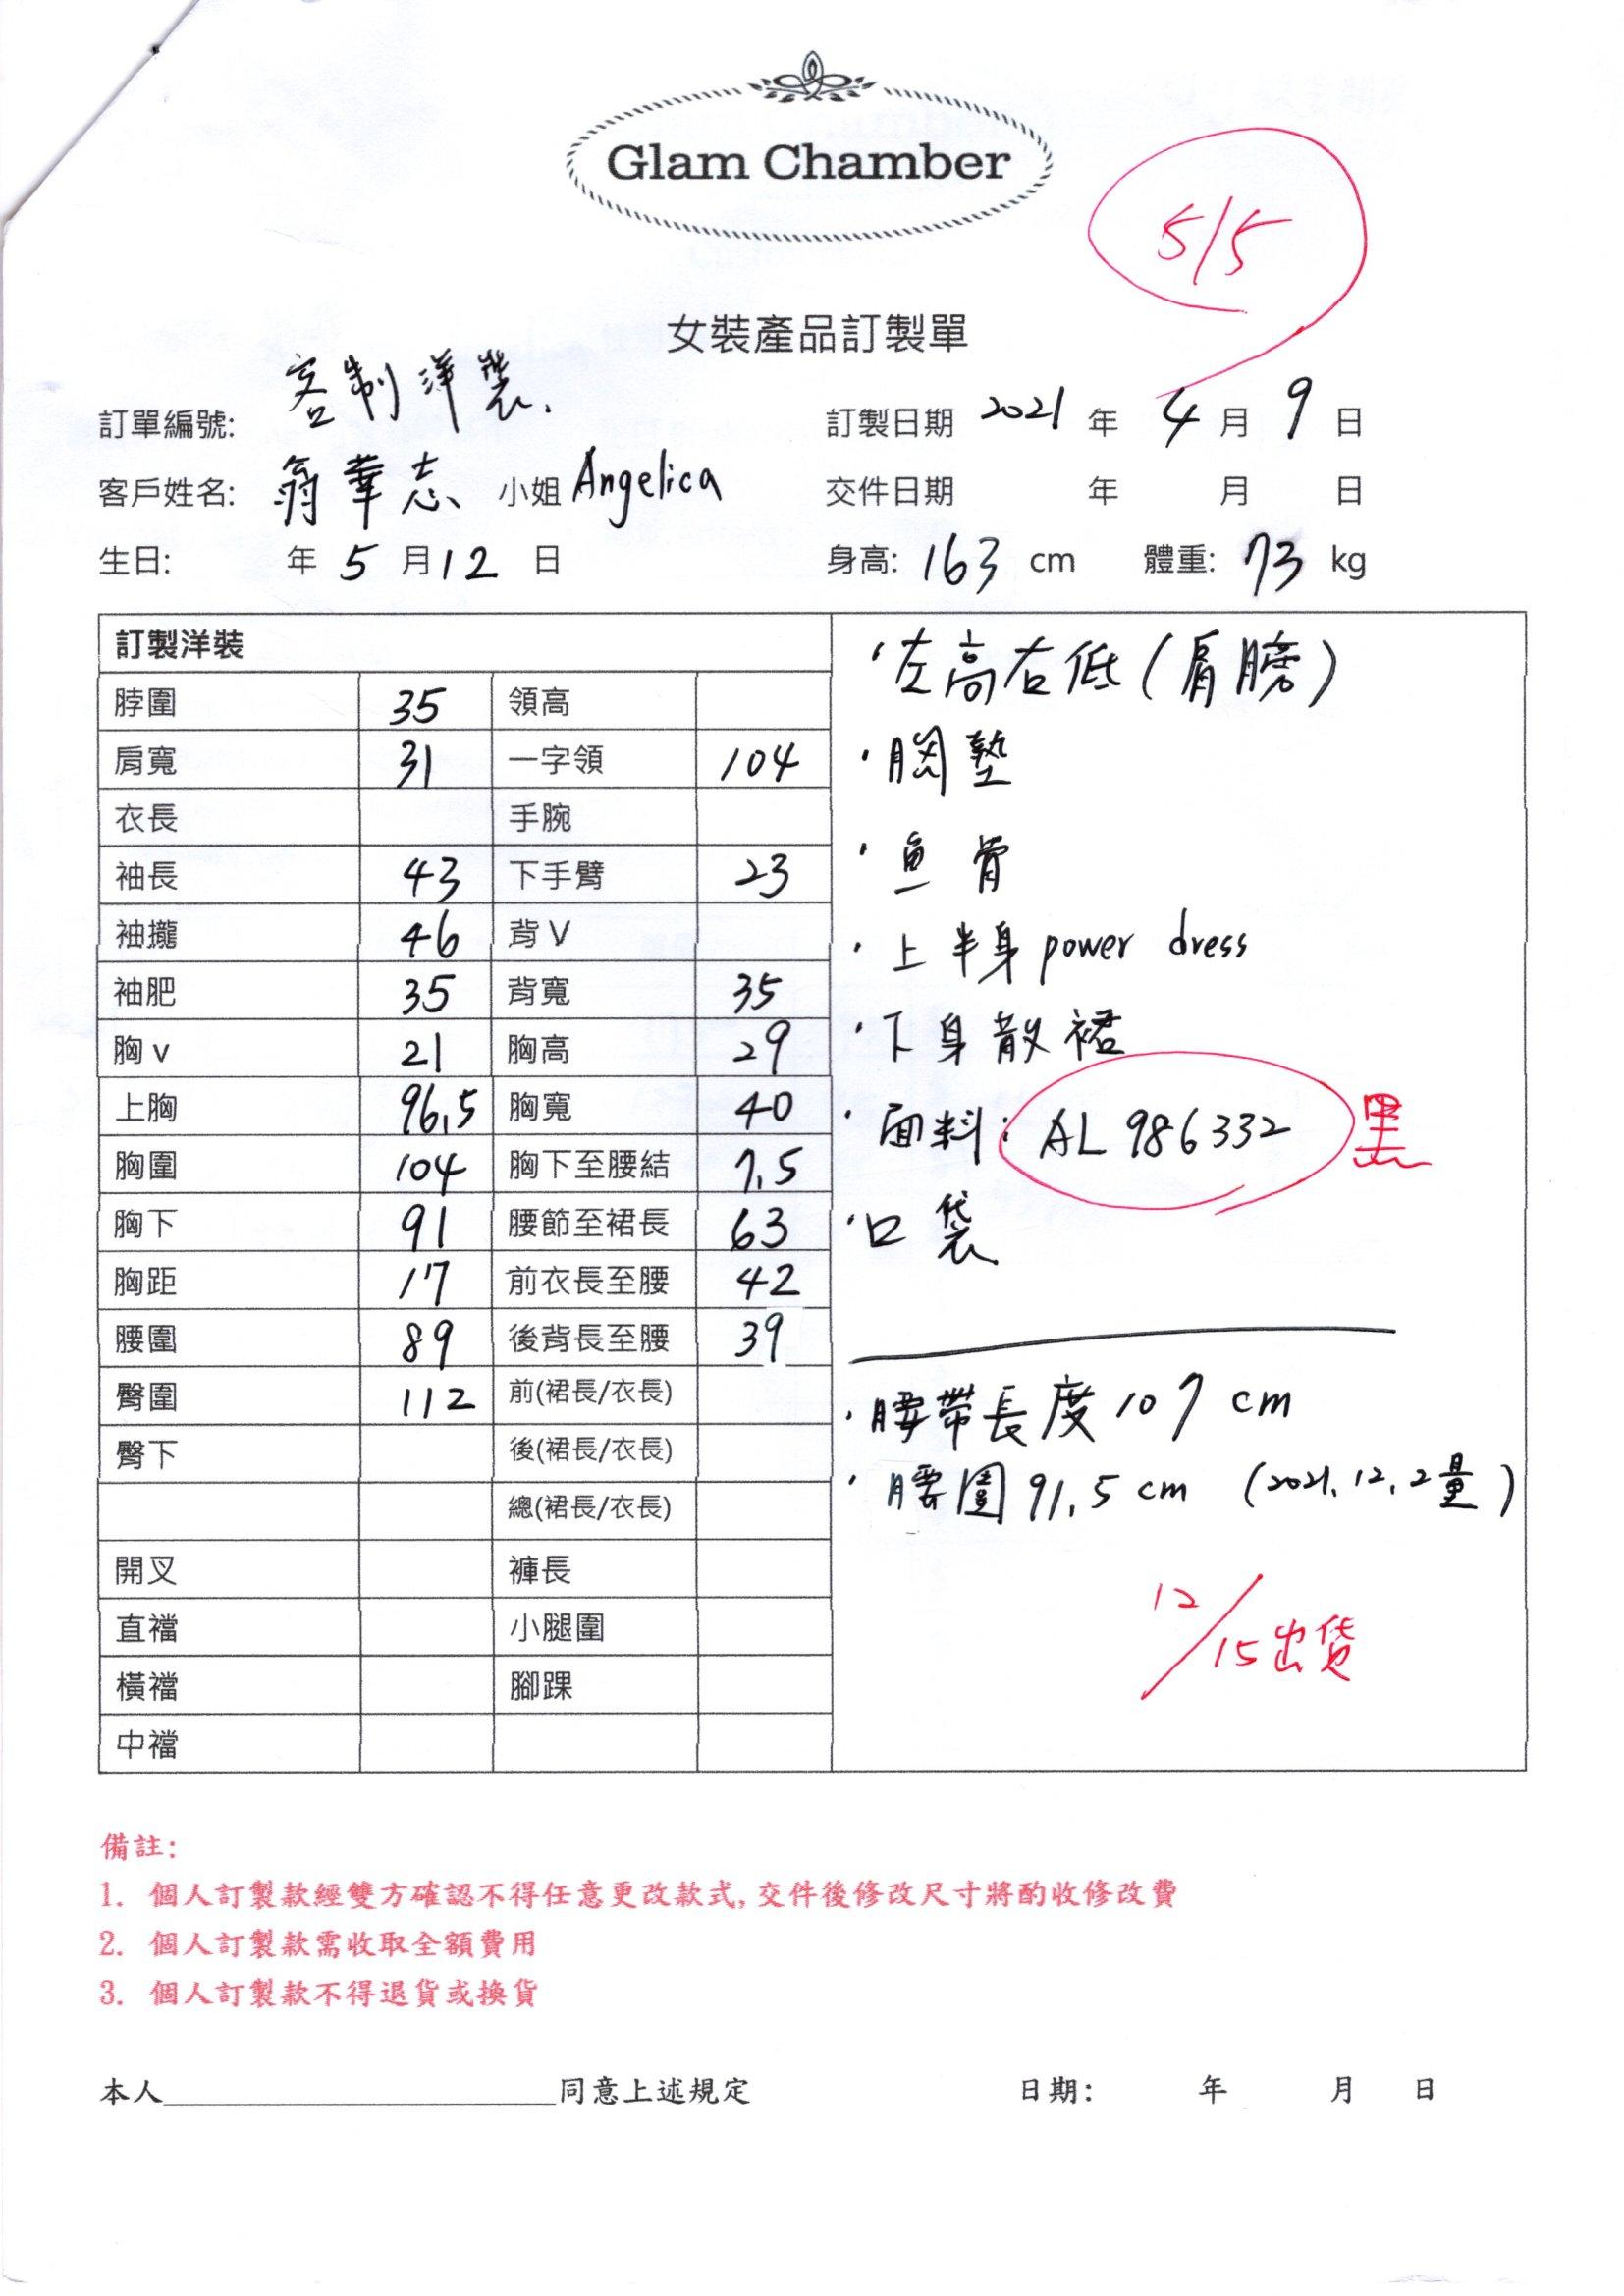 Glam Chamber
5/5
女裝產品訂製單
訂單編號: 客制洋裝.
訂製日期 2021 年 4 月 9 日
客戶姓名: 翁華志 小姐 Angelica
交件日期 年 月 日
生日: 年 5 月 12 日
身高: 163 cm 體重: 73 kg
訂製洋裝
脖圍 35 領高
肩寬 31 一字領 104
衣長 手腕
袖長 43 下手臂 23
袖攏 46 背 V
袖肥 35 背寬 35
胸 v 21 胸高 29
上胸 96.5 胸寬 40
胸圍 104 胸下至腰結 7.5
胸下 91 腰節至裙長 63
胸距 17 前衣長至腰 42
腰圍 89 後背長至腰 39
臀圍 112 前(裙長/衣長)
臀下 後(裙長/衣長)
總(裙長/衣長)
開叉 褲長
直襠 小腿圍
橫襠 腳踝
中襠
·左高右低(肩膀)
·胸墊
·魚骨
·上半身 power dress
·下身散裙
·面料: AL 986332 黑
·口袋
·腰帶長度 107 cm
·腰圍 91.5 cm (2021.12.2量)
12/15出貨
備註:
1. 個人訂製款經雙方確認不得任意更改款式, 交件後修改尺寸將酌收修改費
2. 個人訂製款需收取全額費用
3. 個人訂製款不得退貨或換貨
本人________________________同意上述規定
日期: 年 月 日